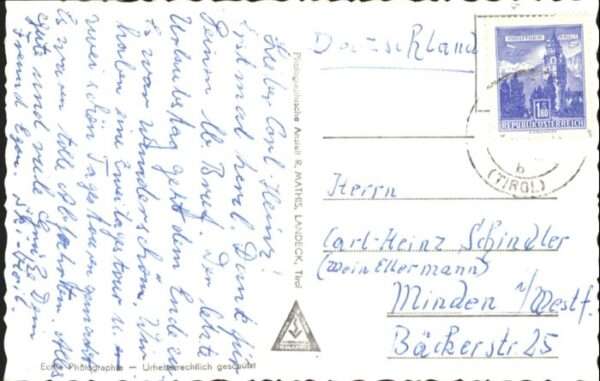 Lieber Carl-Heinz!
Erstmal herzl. Dank für
Deinen lb. Brief. Der letzte
Urlaubstag geht dem Ende zu
Es war wunderschön. Wir
haben eine Zweitagestour u.
zwei schöne Tagestouren gemacht
Es waren tolle Abfahrten. Alles
Gute und viele Grüße Dein
Freund Egon. Ski-Heil.
Photographische Anstalt R. MATHIS, LANDECK, Tirol
Echte Photographie — Urheberrechtlich geschützt
Deutschland
1.80
REPUBLIK ÖSTERREICH
b
(TIROL)
Herrn
Carl-Heinz Schindler
(Wein Ellermann)
Minden i/Westf.
Bäckerstr. 25